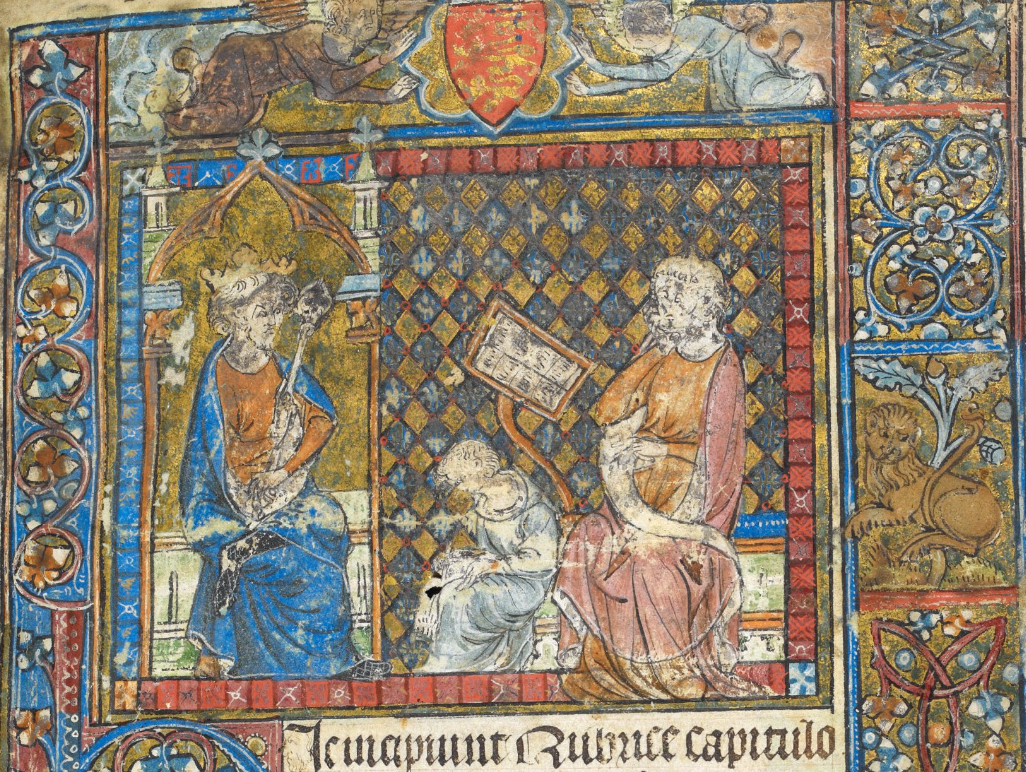 Incipiunt Rubrice capitulo